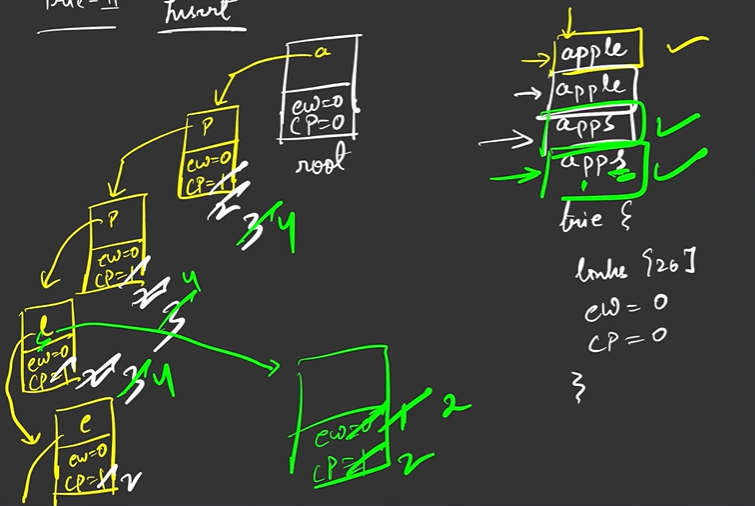 Trie-II Insert
a
ew=0
CP=0
root
P
ew=0
CP=1
2
3
4
P
ew=0
CP=1
2
3
4
l
s
ew=0
CP=1
2
3
4
e
ew=0
CP=1
2
ew=0
1
2
CP=1
2
apple
apple
apps
apps
trie {
links [26]
ew = 0
CP = 0
}